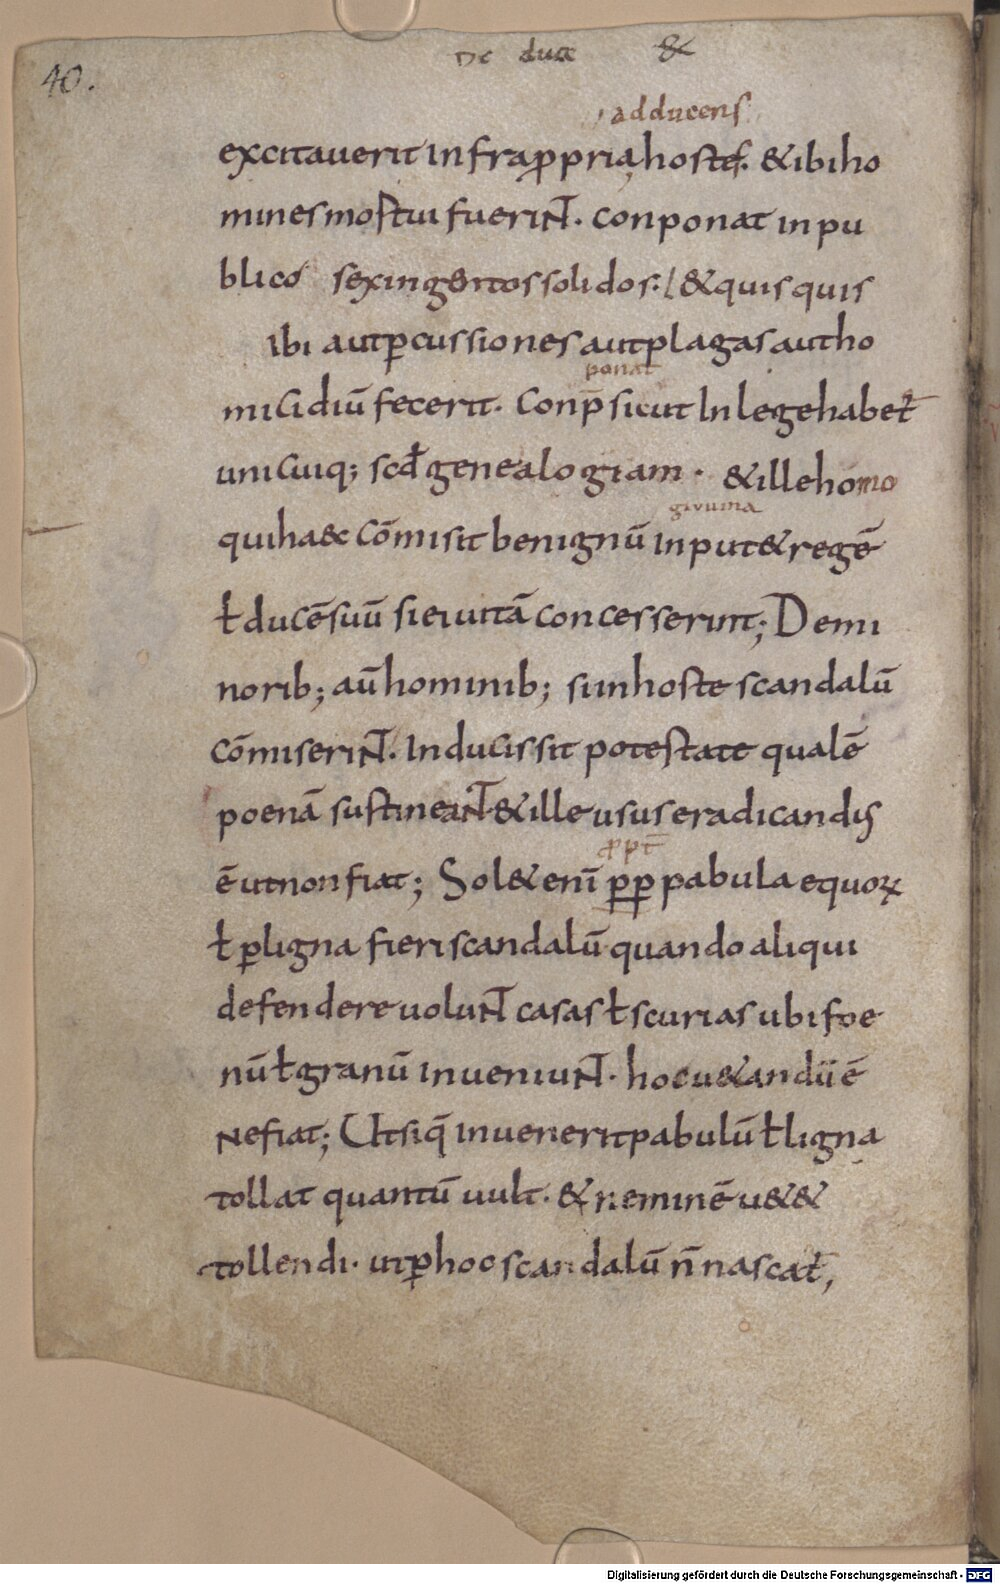 De duce &
40.
adducens
excitauerit in frappria hostes. & ibi ho
mines mostui fueriNT. conponat in pu
blico sexingentos solidos: & quis quis
ibi aut ꝑcussiones aut plagas aut ho
ponat
micidiū fecerit. Conp̄ sicut In lege habet̄
unicuiq; scđ genealogiam. & ille homo
giuuina
qui haec cōmisit benignū input& regē
ł ducē suū si ei uitā concesserint; De mi
norib; aū hominib; si in hoste scandalū
cōmiseriNT. In ducis sit potestate qualē
poenā sustineaNT & ille usus eradicandus
ē ut non fiat; Sol& enī ꝑꝑ pabula equoꝝ
ꝓpt̄
ł ꝑ ligna fieri scandalū quando aliqui
defendere uoluNT casas ł scurias ubi foe
nū ł granū inueniuNT. hoc u&andū ē
Ne fiat; Ut siq̄ inuenerit pabulū ł ligna
tollat quantū uult. & neminē u&&
tollendi. ut ꝑ hoc scandalū n̄ nascat̄,
Digitalisierung gefördert durch die Deutsche Forschungsgemeinschaft - DFG